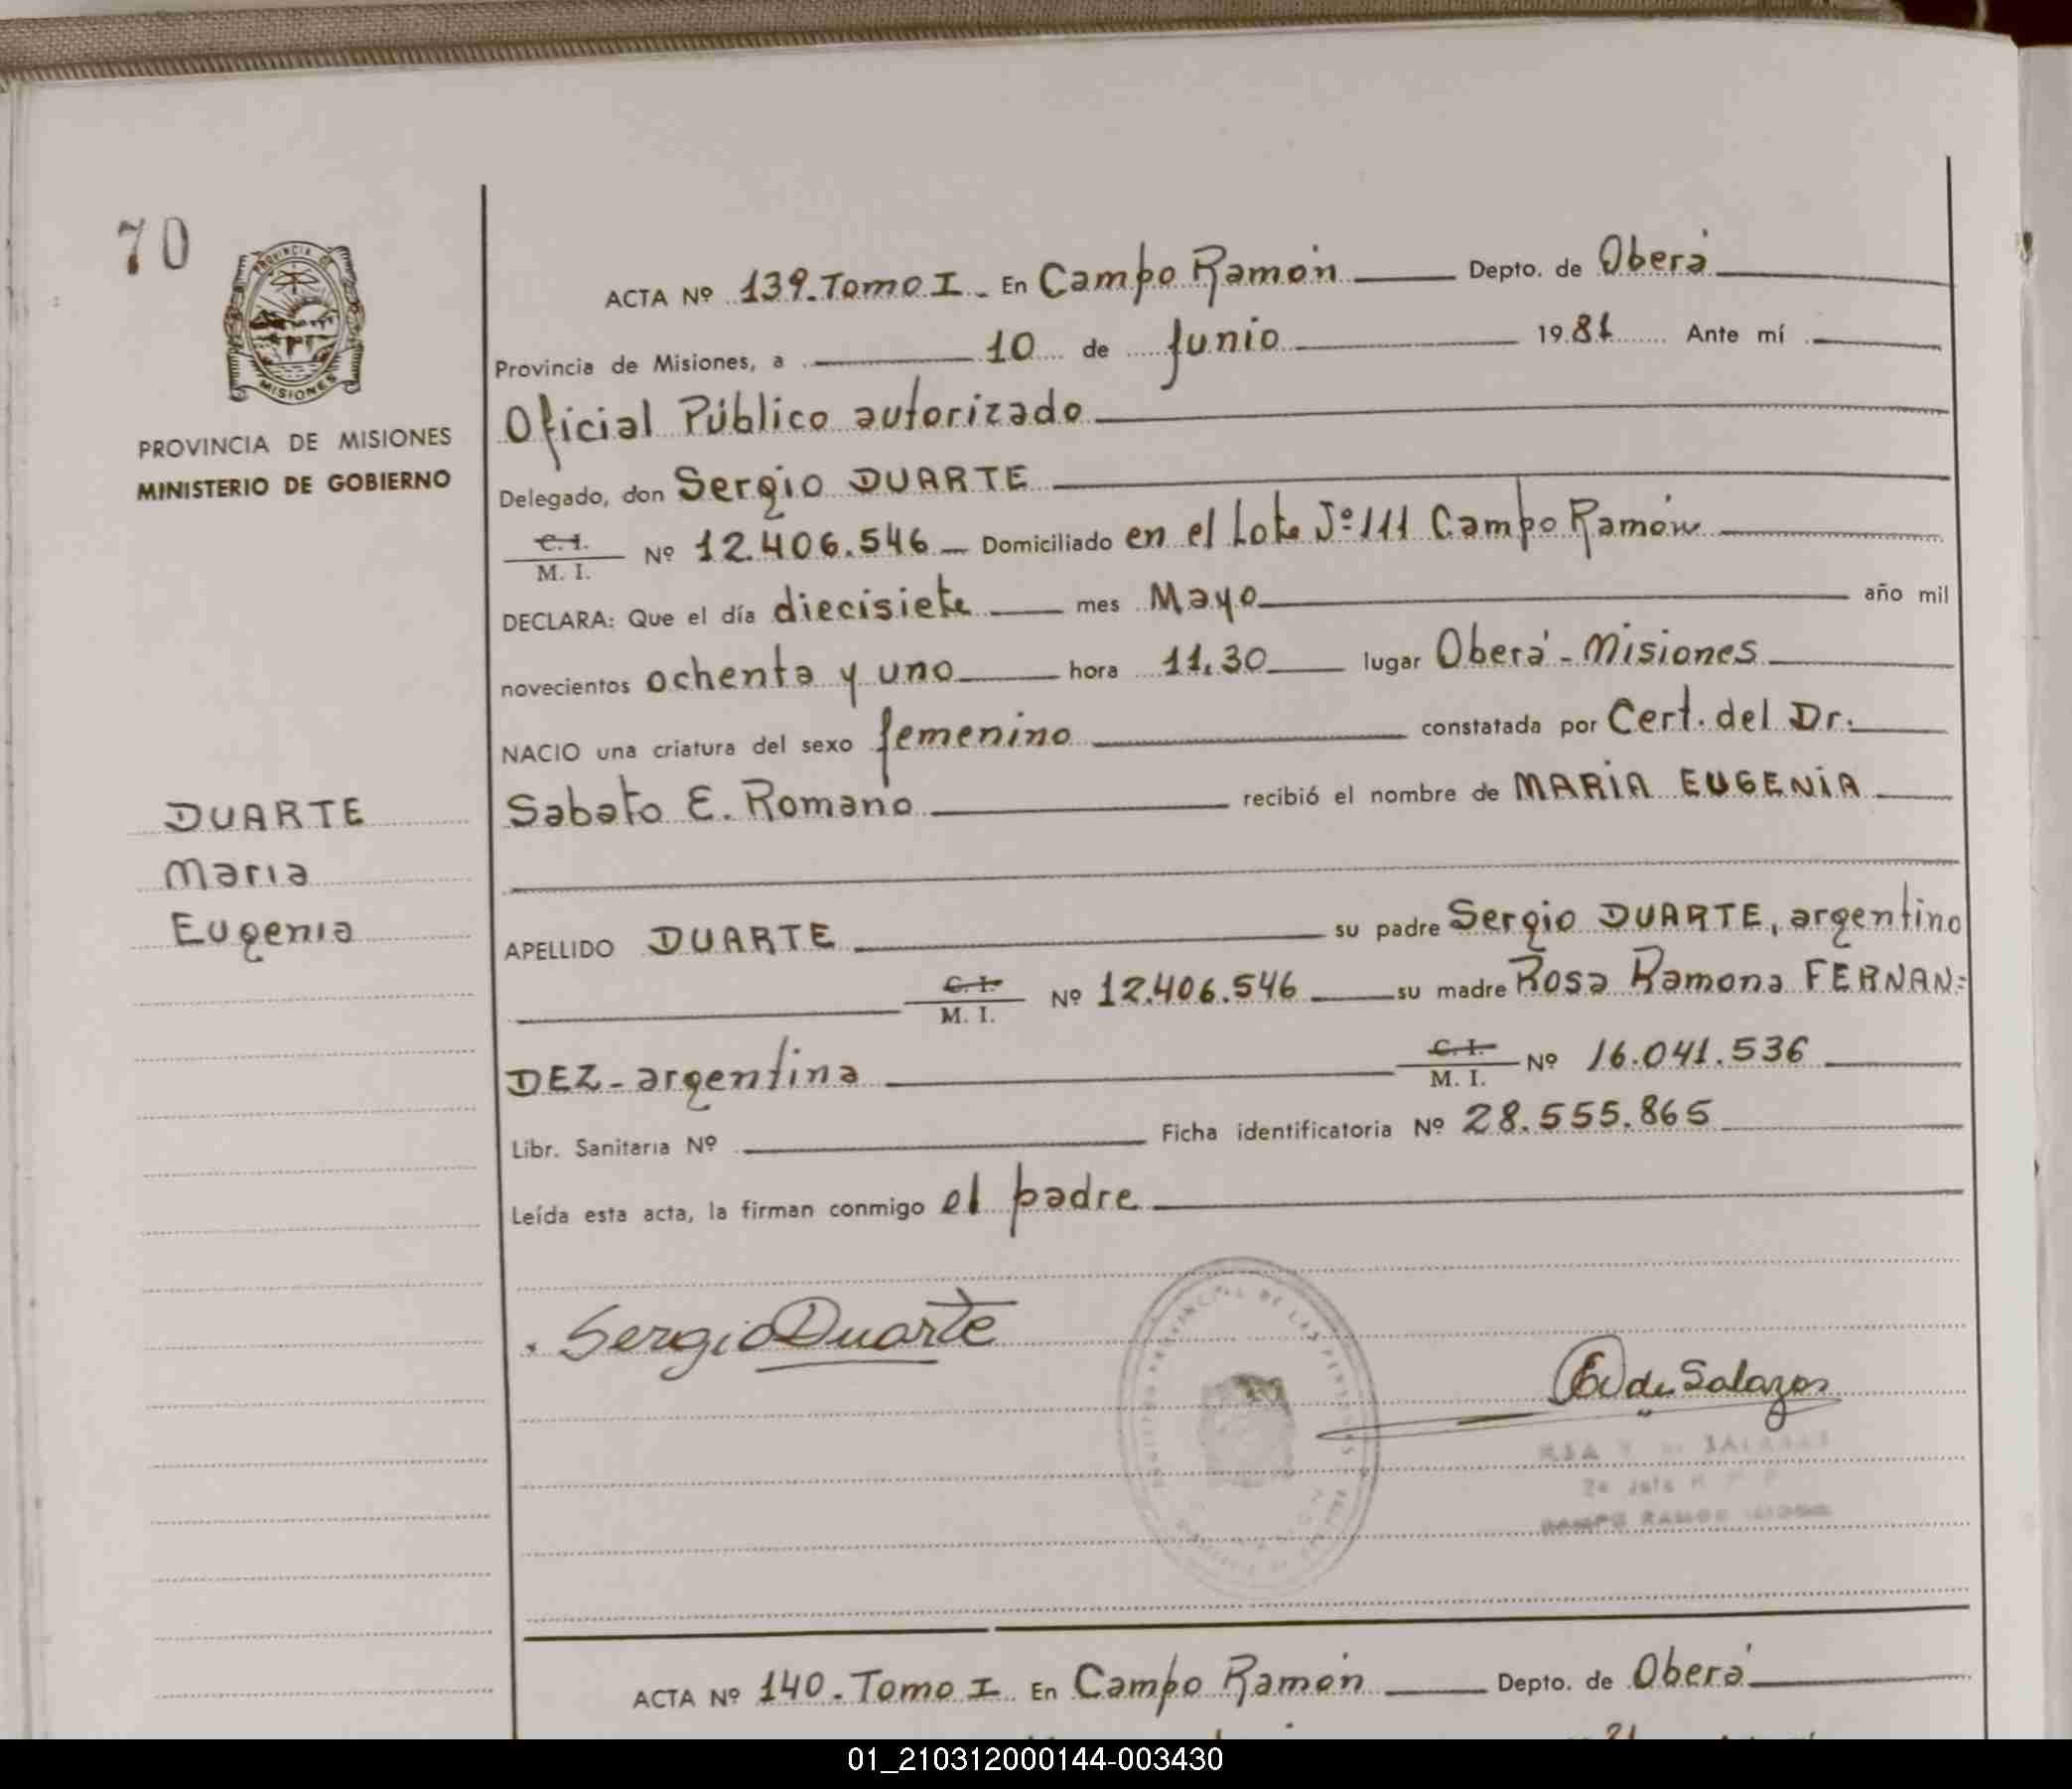 70
PROVINCIA DE MISIONES
MINISTERIO DE GOBIERNO
ACTA Nº 139.Tomo I. En Campo Ramón Depto. de Oberá
Provincia de Misiones, a 10 de Junio 1981 Ante mí
Oficial Público autorizado
Delegado, don Sergio DUARTE
C. I.
M. I. Nº 12.406.546 Domiciliado en el Lote Nº 111 Campo Ramón
DECLARA: Que el día diecisiete mes Mayo año mil
novecientos ochenta y uno hora 11.30 lugar Oberá - Misiones
NACIO una criatura del sexo femenino constatada por Cert. del Dr.
Sabato E. Romano recibió el nombre de MARiA EUGENiA
DUARTE
Maria
Eugenia
APELLIDO DUARTE su padre Sergio DUARTE, argentino
C. I.
M. I. Nº 12.406.546 su madre Rosa Ramona FERNAN=
DEZ - argentina C. I.
M. I. Nº 16.041.536
Libr. Sanitaria Nº Ficha identificatoria Nº 28.555.865
Leída esta acta, la firman conmigo el padre
Sergio Duarte
de Salazar
CAMPO RAMON
ACTA Nº 140. Tomo I En Campo Ramón Depto. de Oberá
01_210312000144-003430